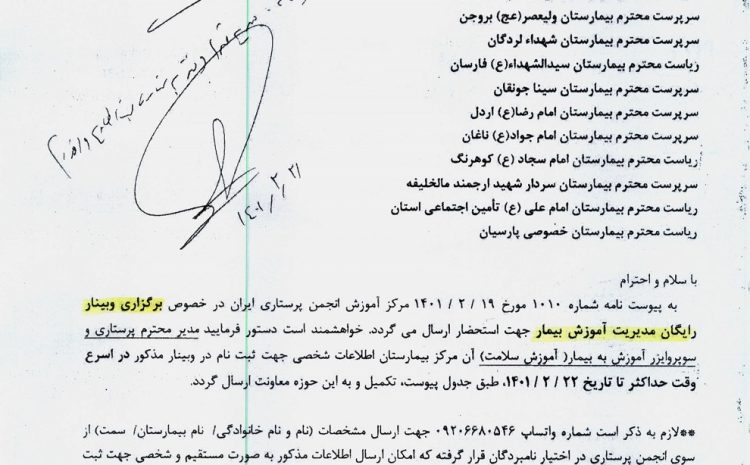 سرپرست محترم بیمارستان ولیعصر(عج) بروجن
سرپرست محترم بیمارستان شهداء لردگان
ریاست محترم بیمارستان سیدالشهداء(ع) فارسان
سرپرست محترم بیمارستان سینا جونقان
سرپرست محترم بیمارستان امام رضا(ع) اردل
سرپرست محترم بیمارستان امام جواد(ع) ناغان
ریاست محترم بیمارستان امام سجاد (ع) کوهرنگ
سرپرست محترم بیمارستان سردار شهید ارجمند مالخلیفه
ریاست محترم بیمارستان امام علی (ع) تأمین اجتماعی استان
ریاست محترم بیمارستان خصوصی پارسیان
۱۴۰۱/۲/۲۱
با سلام و احترام
به پیوست نامه شماره ۱۰۱۰ مورخ ۱۹ / ۲ / ۱۴۰۱ مرکز آموزش انجمن پرستاری ایران در خصوص برگزاری وبینار
رایگان مدیریت آموزش بیمار جهت استحضار ارسال می گردد. خواهشمند است دستور فرمایید مدیر محترم پرستاری و
سوپروایزر آموزش به بیمار( آموزش سلامت) آن مرکز بیمارستان اطلاعات شخصی جهت ثبت نام در وبینار مذکور در اسرع
وقت حداکثر تا تاریخ ۲۲ / ۲ / ۱۴۰۱، طبق جدول پیوست، تکمیل و به این حوزه معاونت ارسال گردد.
**لازم به ذکر است شماره واتساپ ۰۹۲۰۶۶۸۰۵۴۶ جهت ارسال مشخصات (نام و نام خانوادگی/ نام بیمارستان/ سمت) از
سوی انجمن پرستاری در اختیار نامبردگان قرار گرفته که امکان ارسال اطلاعات مذکور به صورت مستقیم و شخصی جهت ثبت